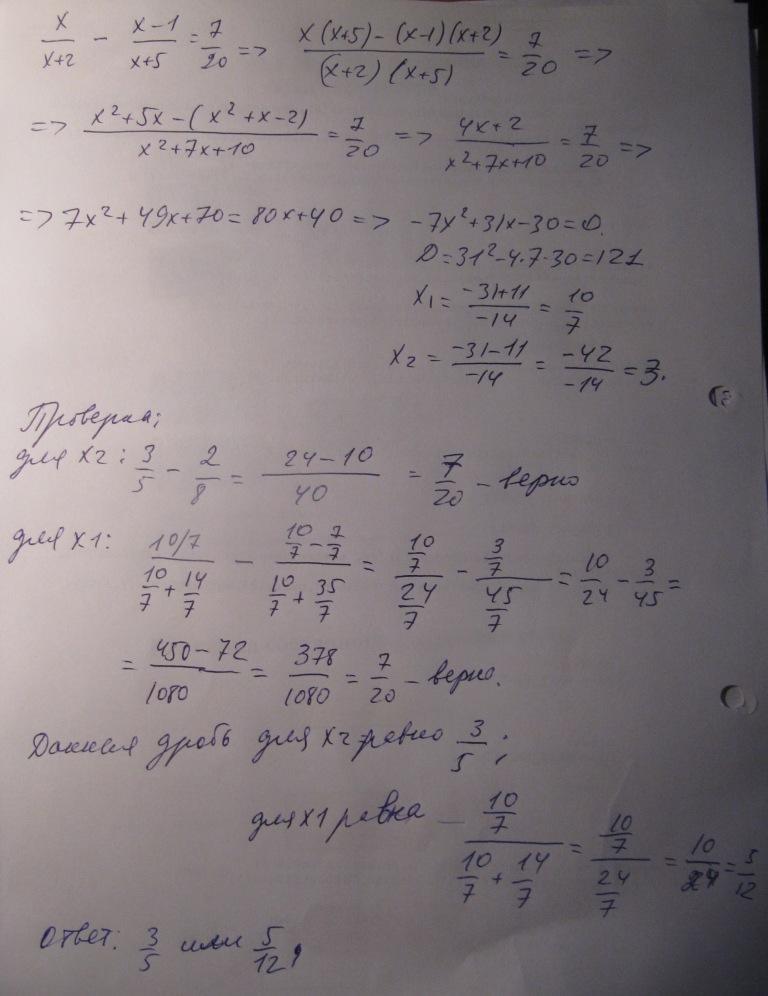 x/(x+2) - (x-1)/(x+5) = 7/20 => (x(x+5)-(x-1)(x+2))/((x+2)(x+5)) = 7/20 =>
=> (x²+5x-(x²+x-2))/(x²+7x+10) = 7/20 => (4x+2)/(x²+7x+10) = 7/20 =>
=> 7x²+49x+70=80x+40 => -7x²+31x-30=0.
D=31²-4·7·30=121
x₁ = (-31+11)/(-14) = 10/7
x₂ = (-31-11)/(-14) = (-42)/(-14) = 3.
Проверка:
для x2: 3/5 - 2/8 = (24-10)/40 = 7/20 - верно
для x1: (10/7)/(10/7 + 14/7) - (10/7 - 7/7)/(10/7 + 35/7) = (10/7)/(24/7) - (3/7)/(45/7) = 10/24 - 3/45 =
= (450-72)/1080 = 378/1080 = 7/20 - верно.
Данная дробь для x2 равно 3/5;
для x1 равна - (10/7)/(10/7 + 14/7) = (10/7)/(24/7) = 10/24 = 5/12
Ответ: 3/5 или 5/12.